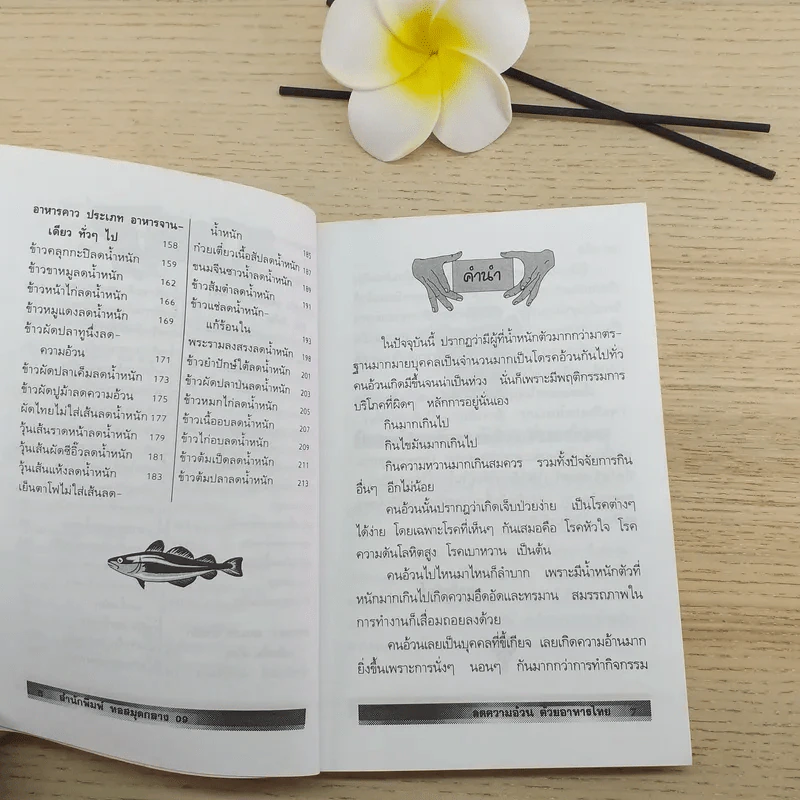 อาหารคาว ประเภท อาหารจาน-
เดียว ทั่วๆ ไป 158
ข้าวคลุกกะปิลดน้ำหนัก 159
ข้าวขาหมูลดน้ำหนัก 162
ข้าวหน้าไก่ลดน้ำหนัก 166
ข้าวหมูแดงลดน้ำหนัก 169
ข้าวผัดปลาทูนึ่งลด-
ความอ้วน 171
ข้าวผัดปลาเค็มลดน้ำหนัก 173
ข้าวผัดปูม้าลดความอ้วน 175
ผัดไทยไม่ใส่เส้นลดน้ำหนัก 177
วุ้นเส้นราดหน้าลดน้ำหนัก 179
วุ้นเส้นผัดซีอิ๊วลดน้ำหนัก 181
วุ้นเส้นแห้งลดน้ำหนัก 183
เย็นตาโฟไม่ใส่เส้นลด-
น้ำหนัก 185
ก๋วยเตี๋ยวเนื้อสับลดน้ำหนัก 187
ขนมจีนซาวน้ำลดน้ำหนัก 189
ข้าวส้มตำลดน้ำหนัก 191
ข้าวแช่ลดน้ำหนัก-
แก้ร้อนใน 193
พระรามลงสรงลดน้ำหนัก 198
ข้าวยำปักษ์ใต้ลดน้ำหนัก 201
ข้าวผัดปลาป่นลดน้ำหนัก 203
ข้าวหมกไก่ลดน้ำหนัก 205
ข้าวเนื้ออบลดน้ำหนัก 207
ข้าวไก่อบลดน้ำหนัก 209
ข้าวต้มเป็ดลดน้ำหนัก 211
ข้าวต้มปลาลดน้ำหนัก 213
สำนักพิมพ์ หอสมุดกลาง 09
คำนำ
ในปัจจุบันนี้ ปรากฏว่ามีผู้ที่น้ำหนักตัวมากกว่ามาตร-
ฐานมากมายบุคคลเป็นจำนวนมากเป็นโดรคอ้วนกันไปทั่ว
คนอ้วนเกิดมีขึ้นจนน่าเป็นห่วง นั่นก็เพราะมีพฤติกรรมการ
บริโภคที่ผิดๆ หลักการอยู่นั่นเอง
กินมากเกินไป
กินไขมันมากเกินไป
กินความหวานมากเกินสมควร รวมทั้งปัจจัยการกิน
อื่นๆ อีกไม่น้อย
คนอ้วนนั้นปรากฏว่าเกิดเจ็บป่วยง่าย เป็นโรคต่างๆ
ได้ง่าย โดยเฉพาะโรคที่เห็นๆ กันเสมอคือ โรคหัวใจ โรค
ความดันโลหิตสูง โรคเบาหวาน เป็นต้น
คนอ้วนไปไหนมาไหนก็ลำบาก เพราะมีน้ำหนักตัวที่
หนักมากเกินไปเกิดความอึดอัดและทรมาน สมรรถภาพใน
การทำงานก็เสื่อมถอยลงด้วย
คนอ้วนเลยเป็นบุคคลที่ขี้เกียจ เลยเกิดความอ้านมาก
ยิ่งขึ้นเพราะการนั่งๆ นอนๆ กันมากกว่าการทำกิจกรรม
ลดความอ้วน ด้วยอาหารไทย 7